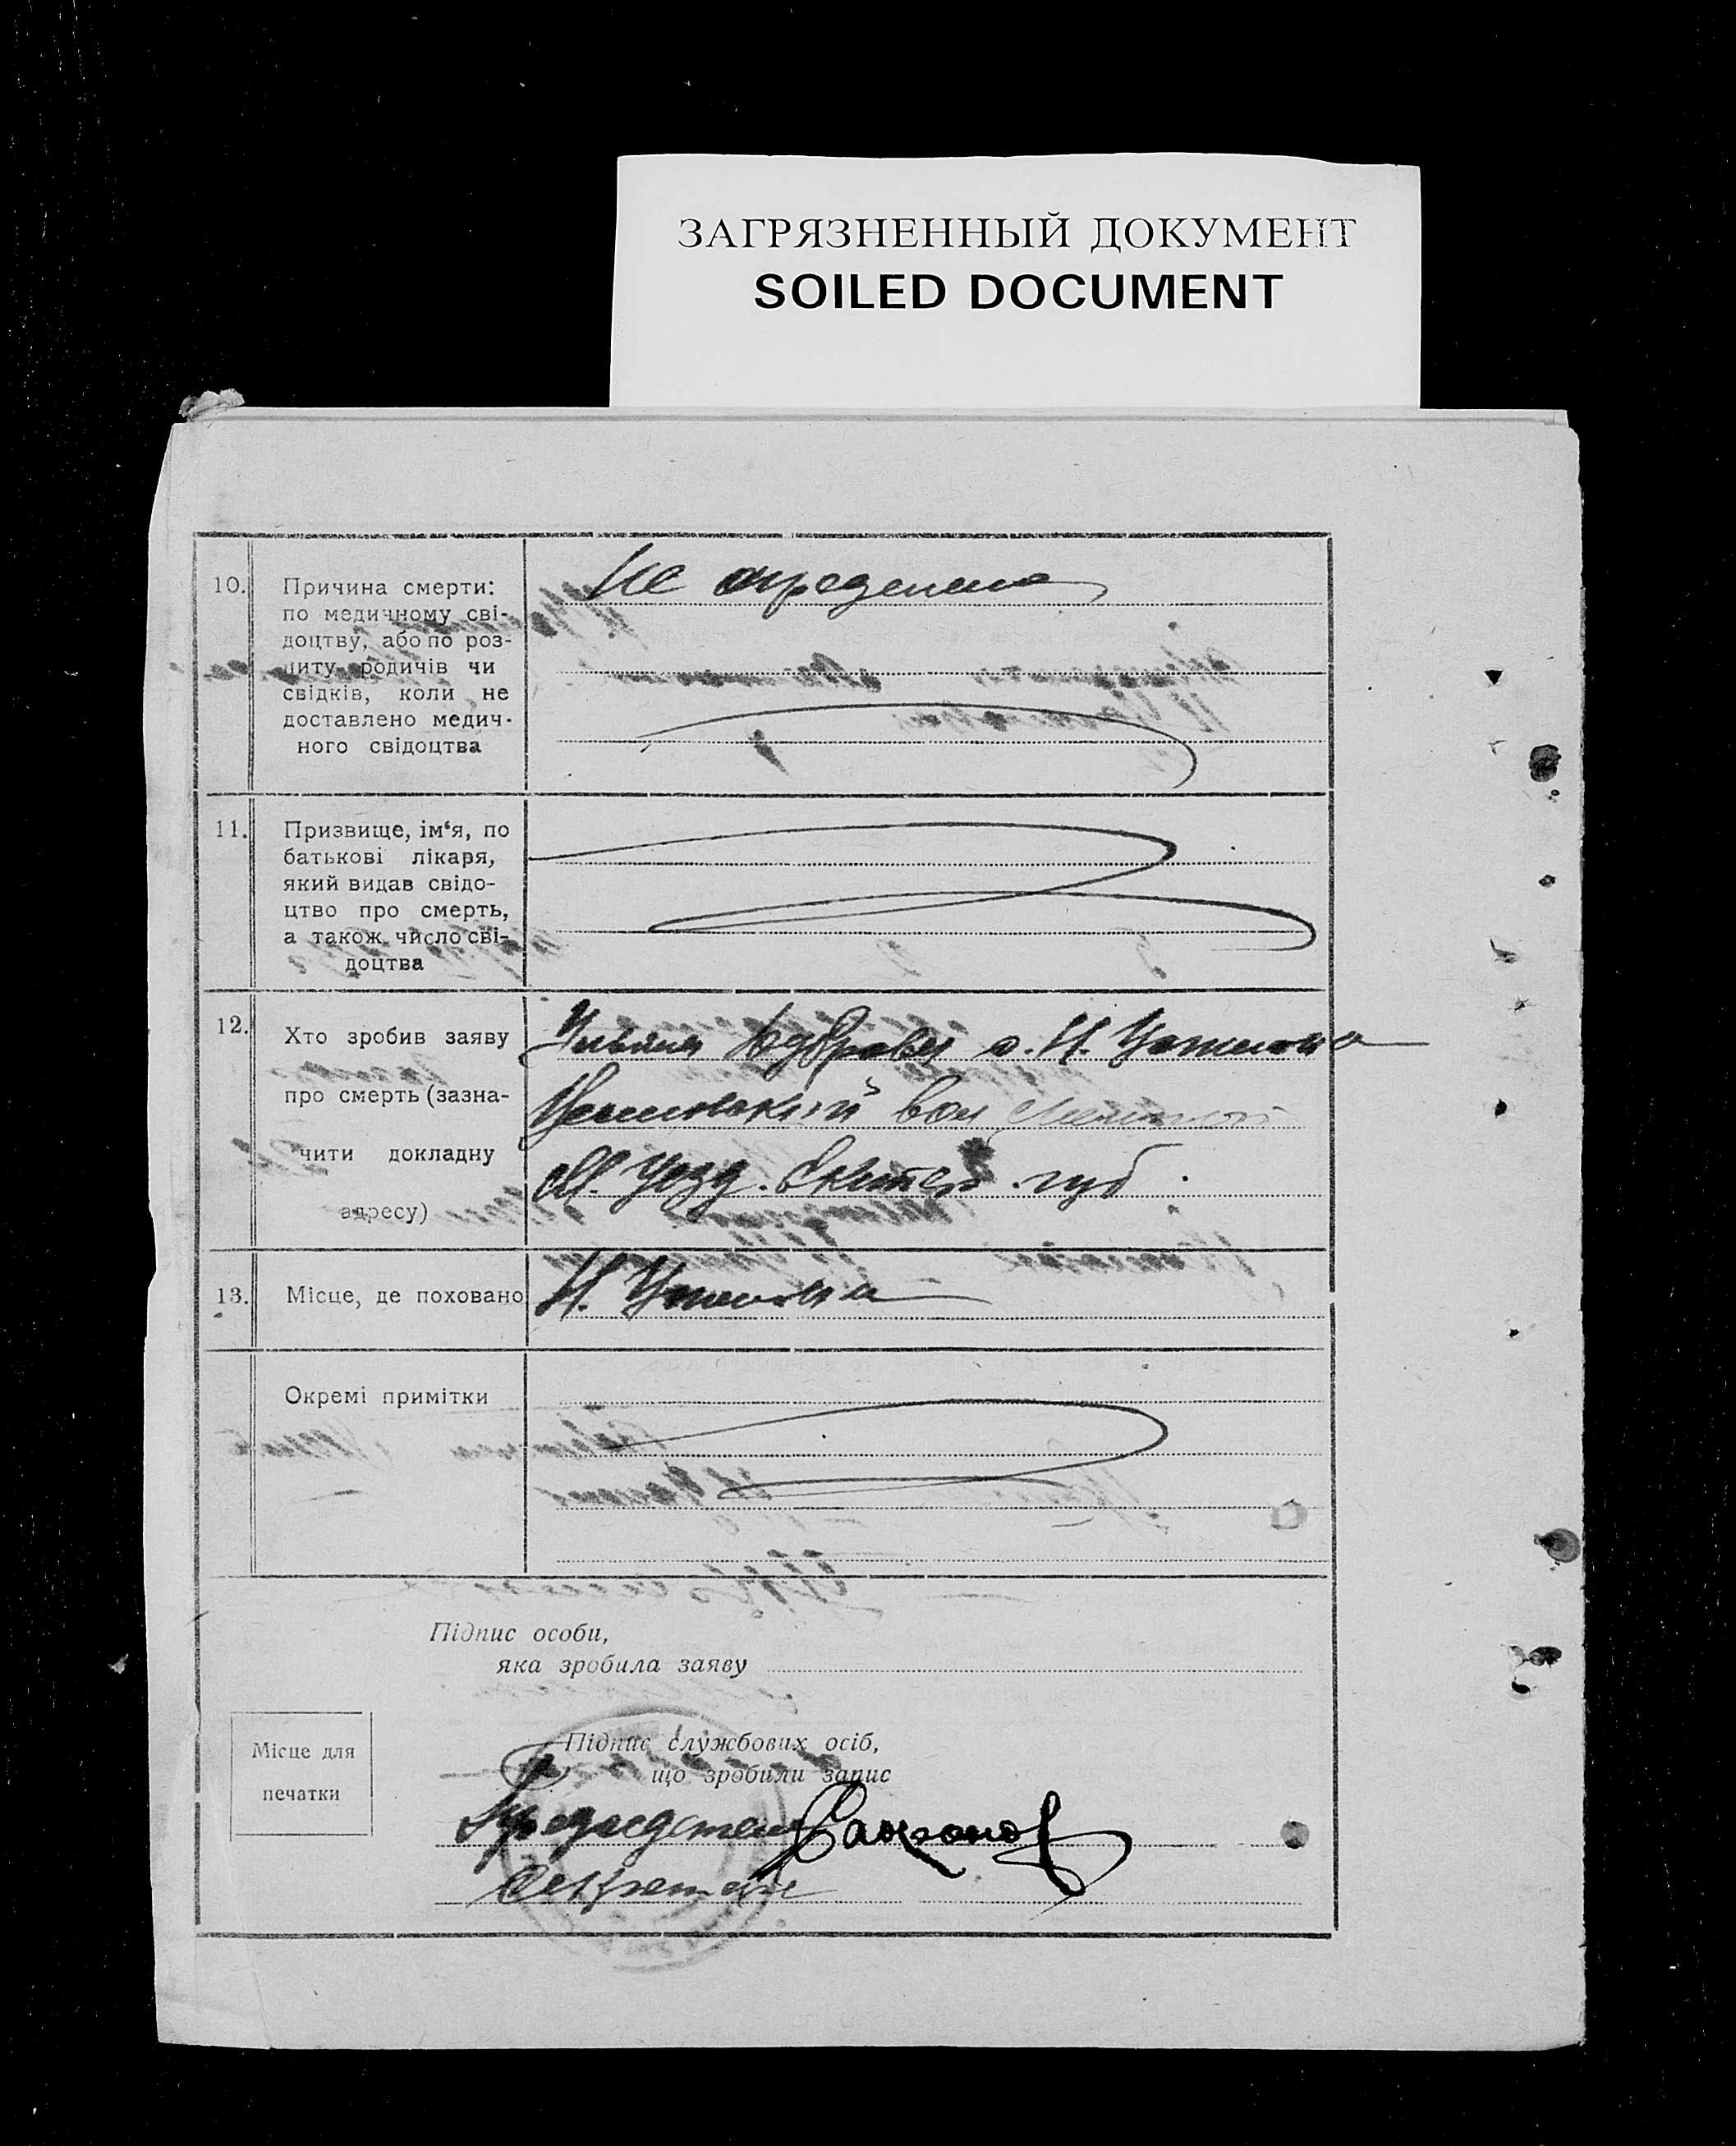 ЗАГРЯЗНЕННЫЙ ДОКУМЕНТ
SOILED DOCUMENT
10.
Причина смерти:
по медичному сві-
доцтву, або по роз-
питу родичів чи
свідків, коли не
доставлено медич-
ного свідоцтва
Не определена
11.
Призвище, ім‘я, по
батькові лікаря,
який видав свідо-
цтво про смерть,
а також число сві-
доцтва
12.
Хто зробив заяву
про смерть (зазна-
чити докладну
адресу)
с. Н.
вол
М. Уезд. губ.
13.
Місце, де поховано
Н.
Окремі примітки
Підпис особи,
яка зробила заяву
Місце для
печатки
Підпис службових осіб,
що зробили запис
Председатель
Секретарь